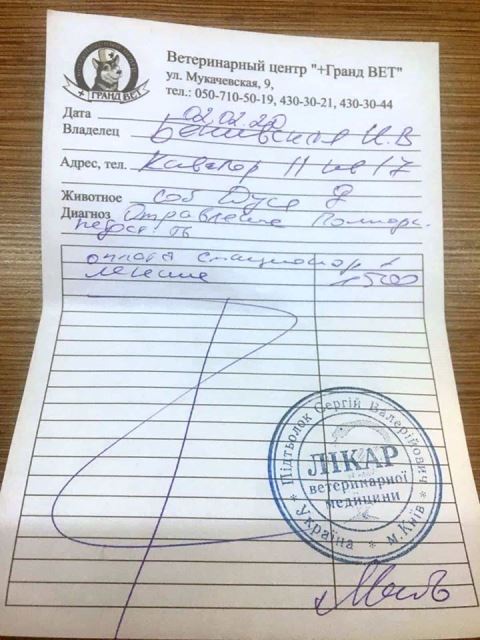 ГРАНД ВЕТ
Ветеринарный центр "+Гранд ВЕТ"
ул. Мукачевская, 9,
тел.: 050-710-50-19, 430-30-21, 430-30-44
Дата 02.02.20
Владелец И.В
Адрес, тел. 11 кв 17
Животное соб Дуся ♀
Диагноз Отравление
оплата стационар
лечение 1500
Підтьолок Сергій Валерійович
ЛІКАР
ветеринарної
медицини
* Україна * м.Київ *